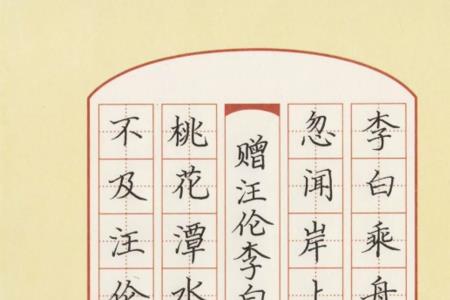 李白乘舟
忽闻岸上
赠汪伦李白
桃花潭水
不及汪伦